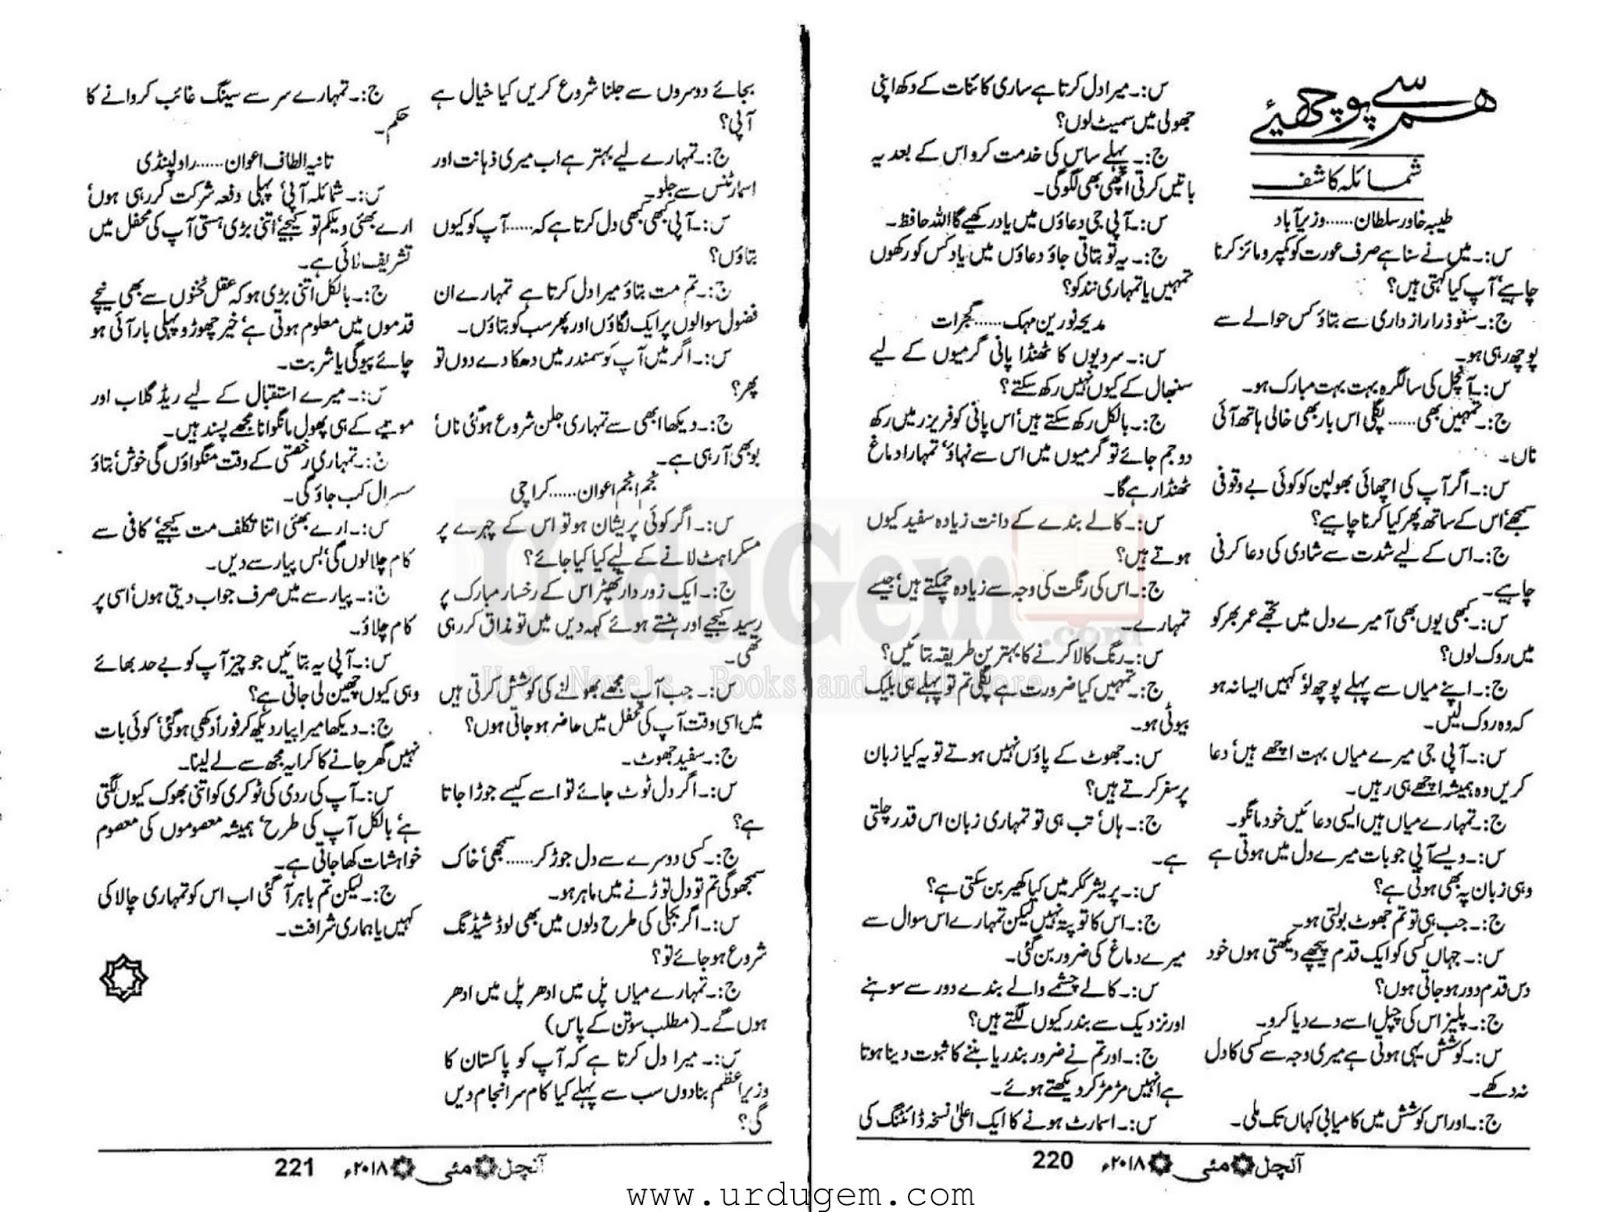 ہم سے پوچھئے
شمائلہ کاشف
طیبہ خاور سلطان...... وزیرآباد
س:۔ میں نے سنا ہے صرف عورت کو کمپرومائز کرنا
چاہیے، آپ کیا کہتی ہیں؟
ج:۔ سنو ذرا رازداری سے بتاؤ کس حوالے سے
پوچھ رہی ہو۔
س:۔ آنچل کی سالگرہ بہت بہت مبارک ہو۔
ج:۔ تمہیں بھی...... پگلی اس بار بھی خالی ہاتھ آئی
ناں۔
س:۔ اگر آپ کی اچھائی بھولپن کو کوئی بے وقوفی
سمجھے اس کے ساتھ پھر کیا کرنا چاہیے؟
ج:۔ اس کے لیے شدت سے شادی کی دعا کرنی
چاہیے۔
س:۔ کبھی یوں بھی آ میرے دل میں تجھے عمر بھر کو
میں روک لوں؟
ج:۔ اپنے میاں سے پہلے پوچھ لو، کہیں ایسا نہ ہو
کہ وہ روک لیں۔
س:۔ آپی جی میرے میاں بہت اچھے ہیں، دعا
کریں وہ ہمیشہ اچھے ہی رہیں۔
ج:۔ تمہارے میاں ہیں ایسی دعائیں خود مانگو۔
س:۔ ویسے آپی جو بات میرے دل میں ہوتی ہے
وہی زبان پہ بھی ہوتی ہے؟
ج:۔ جب ہی تو تم جھوٹ بولتی ہو۔
س:۔ جہاں کسی کو ایک قدم پیچھے دیکھتی ہوں خود
دس قدم دور ہو جاتی ہوں؟
ج:۔ پلیز اس کی چپل اسے دے دیا کرو۔
س:۔ کوشش یہی ہوتی ہے میری وجہ سے کسی کا دل
نہ دکھے۔
ج:۔ اور اس کوشش میں کامیابی کہاں تک ملی۔
س:۔ میرا دل کرتا ہے ساری کائنات کے دکھ اپنی
جھولی میں سمیٹ لوں؟
ج:۔ پہلے ساس کی خدمت کرو اس کے بعد یہ
باتیں کرتی اچھی بھی لگو گی۔
س:۔ آپی جی دعاؤں میں یاد رکھیے گا اللہ حافظ۔
ج:۔ یہ تو بتاتی جاؤ دعاؤں میں یاد کس کو رکھوں
تمہیں یا تمہاری نند کو؟
مدیحہ نورین مہک...... گجرات
س:۔ سردیوں کا ٹھنڈا پانی گرمیوں کے لیے
سنبھال کے کیوں نہیں رکھ سکتے؟
ج:۔ بالکل رکھ سکتے ہیں، اس پانی کو فریزر میں رکھ
دو جم جائے تو گرمیوں میں اس سے نہاؤ، تمہارا دماغ
ٹھنڈا رہے گا۔
س:۔ کالے بندے کے دانت زیادہ سفید کیوں
ہوتے ہیں؟
ج:۔ اس کی رنگت کی وجہ سے زیادہ چمکتے ہیں، جیسے
تمہارے۔
س:۔ رنگ کالا کرنے کا بہترین طریقہ بتائیں؟
ج:۔ تمہیں کیا ضرورت ہے پگلی تم تو پہلے ہی بلیک
بیوٹی ہو۔
س:۔ جھوٹ کے پاؤں نہیں ہوتے تو یہ کیا زبان
پر سفر کرتے ہیں؟
ج:۔ ہاں، تب ہی تو تمہاری زبان اس قدر چلتی
ہے۔
س:۔ پریشر ککر میں کیا کھیر بن سکتی ہے؟
ج:۔ اس کا تو پتہ نہیں لیکن تمہارے اس سوال سے
میرے دماغ کی ضرور بن گئی۔
س:۔ کالے چشمے والے بندے دور سے سوہنے
اور نزدیک سے بندر کیوں لگتے ہیں؟
ج:۔ اور تم نے ضرور بندریا بننے کا ثبوت دینا ہوتا
ہے انہیں مڑ مڑ کر دیکھتے ہوئے۔
س:۔ اسمارٹ ہونے کا ایک اعلیٰ نسخہ ڈائٹنگ کی
آنچل مئی ۲۰۱۸ء 220
بجائے دوسروں سے جلنا شروع کریں کیا خیال ہے
آپی؟
ج:۔ تمہارے لیے بہتر ہے اب میری ذہانت اور
اسمارٹنس سے جلو۔
س:۔ آپی کبھی کبھی دل کرتا ہے کہ...... آپ کو کیوں
بتاؤں؟
ج:۔ تم مت بتاؤ میرا دل کرتا ہے تمہارے ان
فضول سوالوں پر ایک لگاؤں اور پھر سب کو بتاؤں۔
س:۔ اگر میں آپ کو سمندر میں دھکا دے دوں تو
پھر؟
ج:۔ دیکھا ابھی سے تمہاری جلن شروع ہو گئی ناں
بو بھی آ رہی ہے۔
نجم انجم اعوان...... کراچی
س:۔ اگر کوئی پریشان ہو تو اس کے چہرے پر
مسکراہٹ لانے کے لیے کیا کیا جائے؟
ج:۔ ایک زور دار تھپڑ اس کے رخسار مبارک پر
رسید کیجیے اور ہنستے ہوئے کہہ دیں میں تو مذاق کر رہی
تھی۔
س:۔ جب آپ مجھے بھولنے کی کوشش کرتی ہیں
میں اسی وقت آپ کی محفل میں حاضر ہو جاتی ہوں؟
ج:۔ سفید جھوٹ۔
س:۔ اگر دل ٹوٹ جائے تو اسے کیسے جوڑا جاتا
ہے؟
ج:۔ کسی دوسرے سے دل جوڑ کر...... سمجھی، خاک
سمجھو گی تم تو دل توڑنے میں ماہر ہو۔
س:۔ اگر بجلی کی طرح دلوں میں بھی لوڈ شیڈنگ
شروع ہو جائے تو؟
ج:۔ تمہارے میاں پل میں ادھر پل میں ادھر
ہوں گے۔ (مطلب سوتن کے پاس)
س:۔ میرا دل کرتا ہے کہ آپ کو پاکستان کا
وزیراعظم بنا دوں سب سے پہلے کیا کام سرانجام دیں
گی؟
ج:۔ تمہارے سر سے سینگ غائب کروانے کا
حکم۔
تانیہ الطاف اعوان...... راولپنڈی
س:۔ شمائلہ آپی پہلی دفعہ شرکت کر رہی ہوں،
ارے بھئی ویلکم تو کیجیے، اتنی بڑی ہستی آپ کی محفل میں
تشریف لائی ہے۔
ج:۔ بالکل اتنی بڑی ہو کہ عقل ٹخنوں سے بھی نیچے
قدموں میں معلوم ہوتی ہے، خیر چھوڑو پہلی بار آئی ہو
چائے پیو گی یا شربت۔
س:۔ میرے استقبال کے لیے ریڈ گلاب اور
موتیے کے ہی پھول مانگوانا مجھے پسند ہیں۔
ج:۔ تمہاری رخصتی کے وقت منگواؤں گی خوش، بتاؤ
سسرال کب جاؤ گی۔
س:۔ ارے بھئی اتنا تکلف مت کیجیے، کافی سے
کام چلا لوں گی، بس پیار سے دیں۔
ج:۔ پیار سے میں صرف جواب دیتی ہوں، اسی پر
کام چلاؤ۔
س:۔ آپی یہ بتائیں جو چیز آپ کو بے حد بھائے
وہی کیوں چھین لی جاتی ہے؟
ج:۔ دیکھا میرا پیار دیکھ کر فوراً دکھی ہو گئی، کوئی بات
نہیں گھر جانے کا کرایہ مجھ سے لے لینا۔
س:۔ آپ کی ردی کی ٹوکری کو اتنی بھوک کیوں لگتی
ہے، بالکل آپ کی طرح، ہمیشہ معصوموں کی معصوم
خواہشات کھا جاتی ہے۔
ج:۔ لیکن تم باہر آ گئی اب اس کو تمہاری چالاکی
کہیں یا ہماری شرافت۔
آنچل مئی ۲۰۱۸ء 221
UrduGem.com
Urdu Novels, Books and Much More
www.urdugem.com